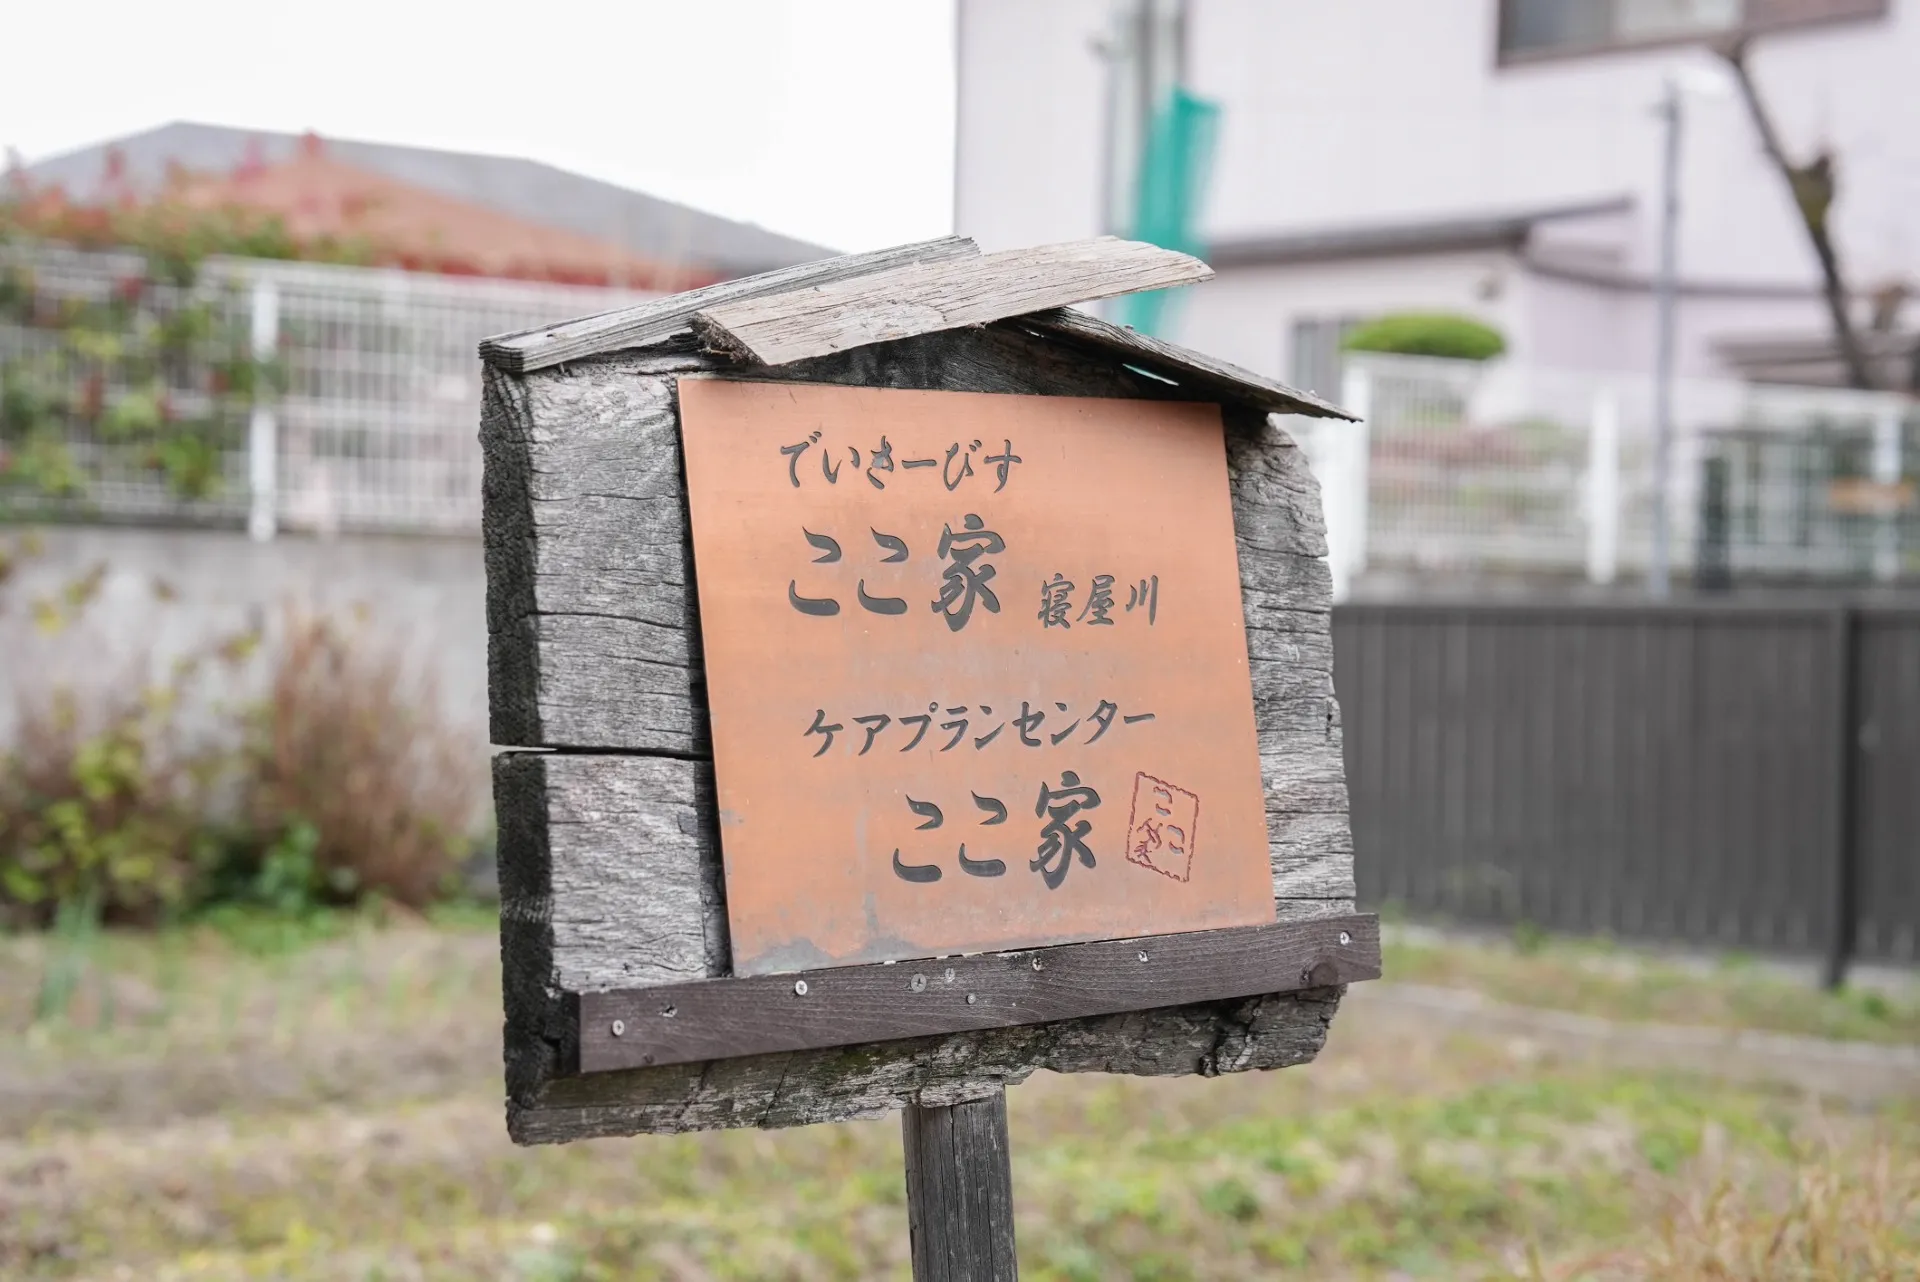 でいさーびす
ここ家 寝屋川
ケアプランセンター
ここ家
ここ家